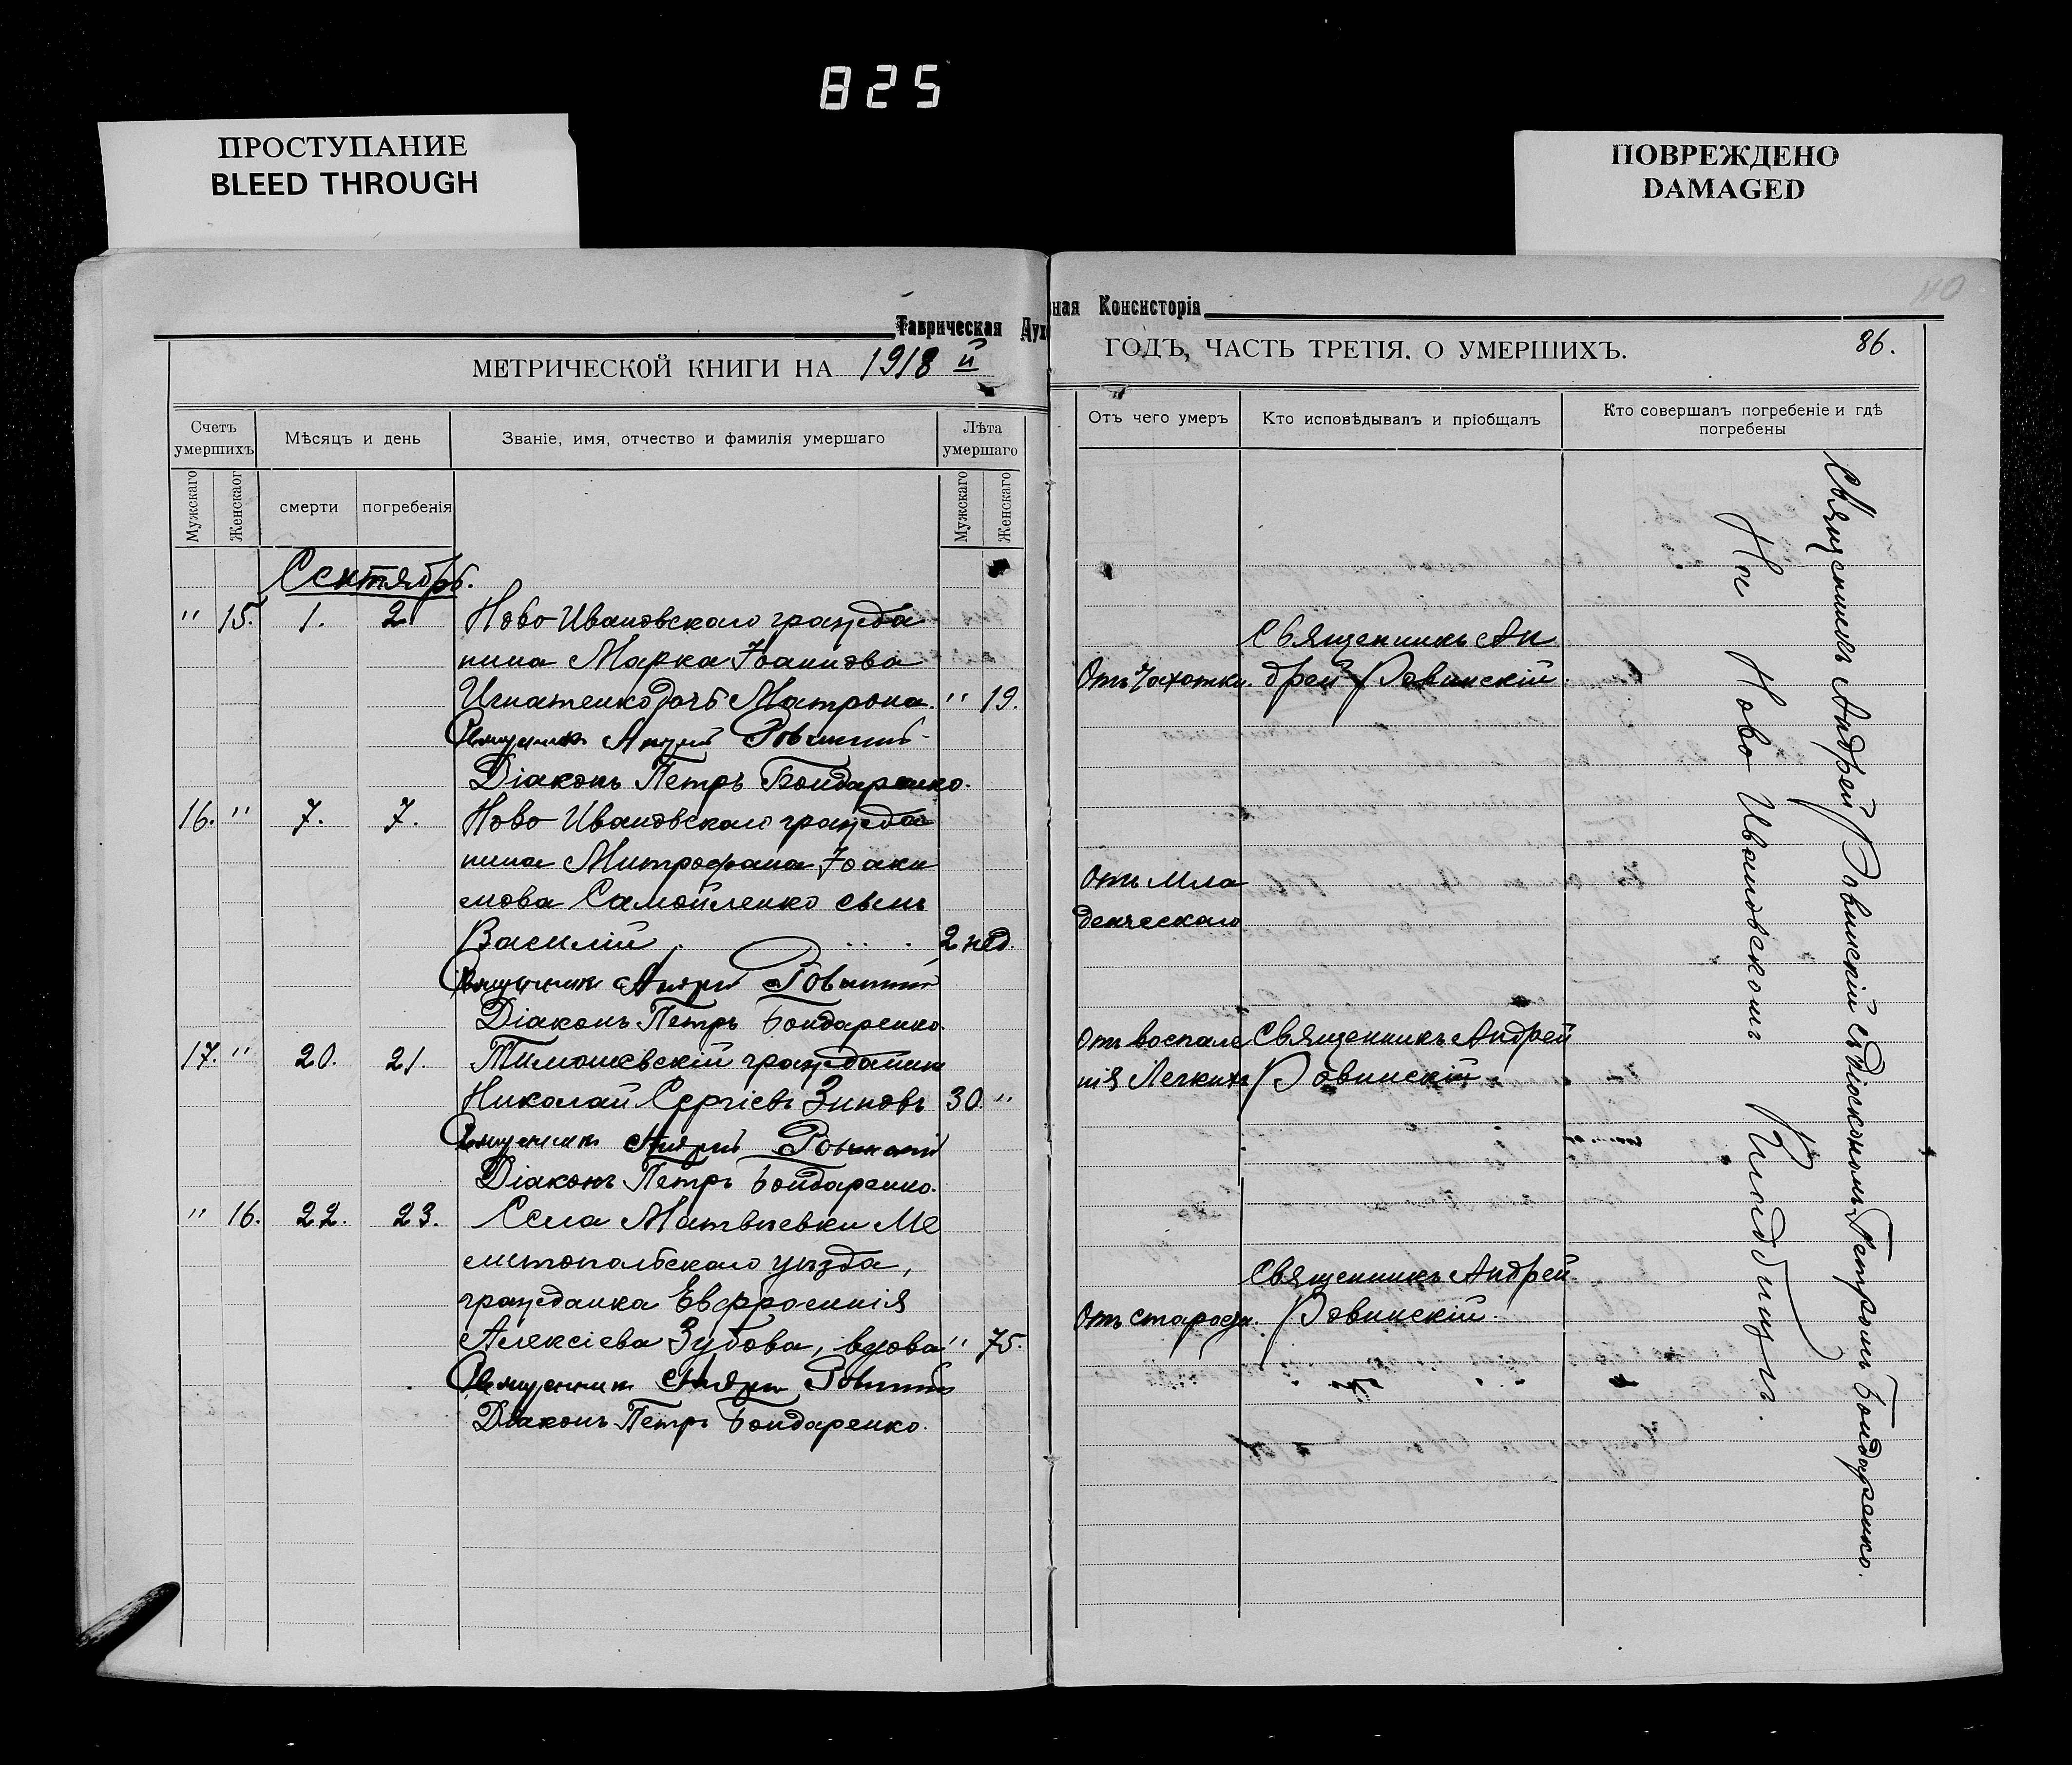 825
ПРОСТУПАНИЕ
BLEED THROUGH
ПОВРЕЖДЕНО
DAMAGED
Таврическая Духо
МЕТРИЧЕСКОЙ КНИГИ НА 1918 й
Счетъ умершихъ
Мѣсяцъ и день
Званіе, имя, отчество и фамилія умершаго
Лѣта умершаго
Мужскаго
Женскаог
смерти
погребенія
Мужскаго
Женскаго
Сентябрь.
" 15. 1. 2 Ново Ивановскаго гражда
нина Марка Іоаннова
Игнатенко дочь Матрона. " 19.
Священникъ Андрей Ровинскій
Діаконъ Петръ Бондаренко.
16. " 7. 7. Ново Ивановскаго гражда
нина Митрофана Іоаки
мова Самойленко сынъ
Василій . . . . 2 нед.
Священникъ Андрей Ровинскій
Діаконъ Петръ Бондаренко.
17. " 20. 21. Тимошевскій гражданинъ
Николай Сергіевъ Зиновъ 30. "
Священникъ Андрей Ровинскій
Діаконъ Петръ Бондаренко.
" 16. 22. 23. Села Матвѣевки Ме
литопольскаго уѣзда,
гражданка Евфросинія
Алексіева Зубова, вдова " 75.
Священникъ Андрей Ровинскій
Діаконъ Петръ Бондаренко.
ная Консисторія
ГОДЪ, ЧАСТЬ ТРЕТІЯ. О УМЕРШИХЪ.
86.
Отъ чего умеръ
Кто исповѣдывалъ и пріобщалъ
Кто совершалъ погребеніе и гдѣ
погребены
Священникъ Ан
Отъ Чахотки. дрей Ровинскій.
Отъ Мла
денческаго
Отъ воспале Священникъ Андрей
нія Легкихъ Ровинскій
Священникъ Андрей
Отъ старости. Ровинскій.
Священникъ Андрей Ровинскій съ Діакономъ Петромъ Бондаренко.
На Ново Ивановскомъ Кладбищѣ.